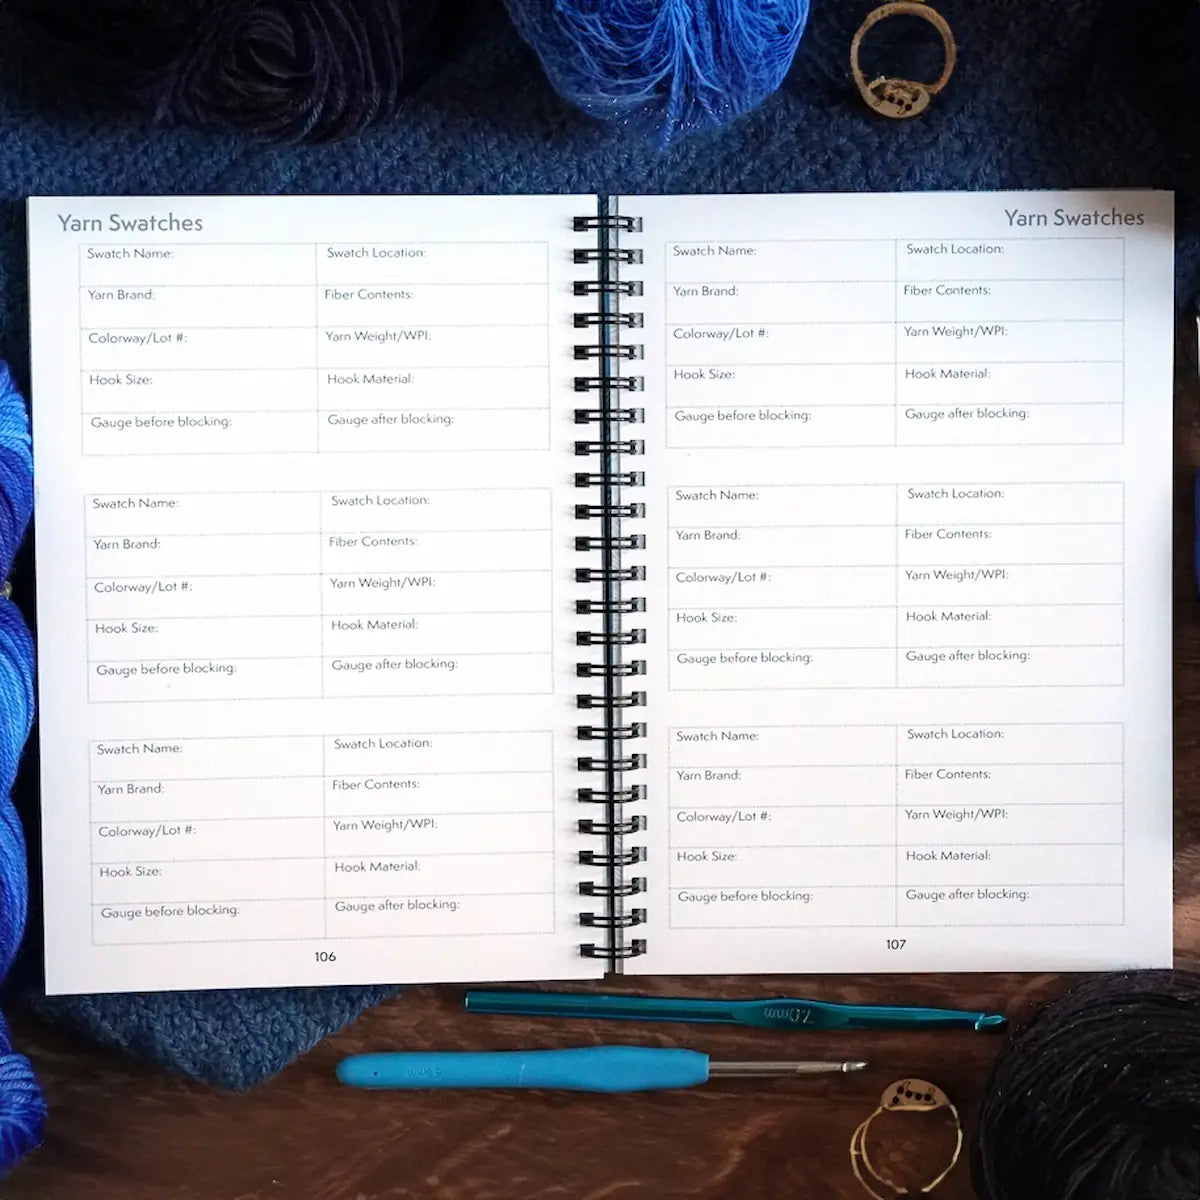 Yarn Swatches
Swatch Name: Swatch Location:
Yarn Brand: Fiber Contents:
Colorway/Lot #: Yarn Weight/WPI:
Hook Size: Hook Material:
Gauge before blocking: Gauge after blocking:
Swatch Name: Swatch Location:
Yarn Brand: Fiber Contents:
Colorway/Lot #: Yarn Weight/WPI:
Hook Size: Hook Material:
Gauge before blocking: Gauge after blocking:
Swatch Name: Swatch Location:
Yarn Brand: Fiber Contents:
Colorway/Lot #: Yarn Weight/WPI:
Hook Size: Hook Material:
Gauge before blocking: Gauge after blocking:
106
Yarn Swatches
Swatch Name: Swatch Location:
Yarn Brand: Fiber Contents:
Colorway/Lot #: Yarn Weight/WPI:
Hook Size: Hook Material:
Gauge before blocking: Gauge after blocking:
Swatch Name: Swatch Location:
Yarn Brand: Fiber Contents:
Colorway/Lot #: Yarn Weight/WPI:
Hook Size: Hook Material:
Gauge before blocking: Gauge after blocking:
Swatch Name: Swatch Location:
Yarn Brand: Fiber Contents:
Colorway/Lot #: Yarn Weight/WPI:
Hook Size: Hook Material:
Gauge before blocking: Gauge after blocking:
107
7.0mm